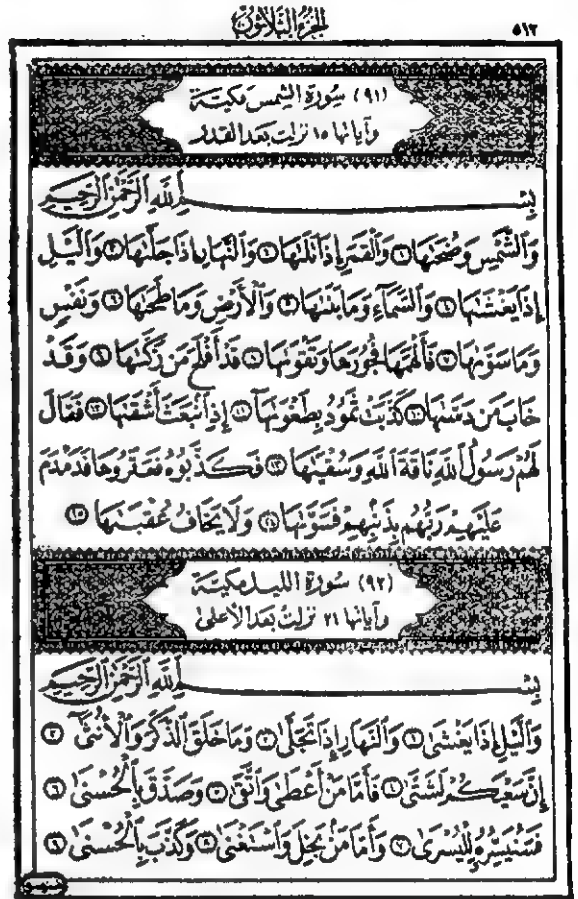 الجزء الثلاثون ٥١٢
(٩١) سورة الشمس مكية
وآياتها ١٥ نزلت بعد القدر
بِسْمِ اللَّهِ الرَّحْمَٰنِ الرَّحِيمِ
وَالشَّمْسِ وَضُحَىٰهَا ١ وَالْقَمَرِ إِذَا تَلَىٰهَا ٢ وَالنَّهَارِ إِذَا جَلَّىٰهَا ٣ وَالَّيْلِ
إِذَا يَغْشَىٰهَا ٤ وَالسَّمَآءِ وَمَا بَنَىٰهَا ٥ وَالْأَرْضِ وَمَا طَحَىٰهَا ٦ وَنَفْسٍ
وَمَا سَوَّىٰهَا ٧ فَأَلْهَمَهَا فُجُورَهَا وَتَقْوَىٰهَا ٨ قَدْ أَفْلَحَ مَن زَكَّىٰهَا ٩ وَقَدْ
خَابَ مَن دَسَّىٰهَا ١٠ كَذَّبَتْ ثَمُودُ بِطَغْوَىٰهَآ ١١ إِذِ انۢبَعَثَ أَشْقَىٰهَا ١٢ فَقَالَ
لَهُمْ رَسُولُ اللَّهِ نَاقَةَ اللَّهِ وَسُقْيَٰهَا ١٣ فَكَذَّبُوهُ فَعَقَرُوهَا فَدَمْدَمَ
عَلَيْهِمْ رَبُّهُم بِذَنۢبِهِمْ فَسَوَّىٰهَا ١٤ وَلَا يَخَافُ عُقْبَٰهَا ١٥
(٩٢) سورة الليل مكية
وآياتها ٢١ نزلت بعد الأعلى
بِسْمِ اللَّهِ الرَّحْمَٰنِ الرَّحِيمِ
وَالَّيْلِ إِذَا يَغْشَىٰ ١ وَالنَّهَارِ إِذَا تَجَلَّىٰ ٢ وَمَا خَلَقَ الذَّكَرَ وَالْأُنثَىٰٓ ٣
إِنَّ سَعْيَكُمْ لَشَتَّىٰ ٤ فَأَمَّا مَنْ أَعْطَىٰ وَاتَّقَىٰ ٥ وَصَدَّقَ بِالْحُسْنَىٰ ٦
فَسَنُيَسِّرُهُۥ لِلْيُسْرَىٰ ٧ وَأَمَّا مَنۢ بَخِلَ وَاسْتَغْنَىٰ ٨ وَكَذَّبَ بِالْحُسْنَىٰ ٩